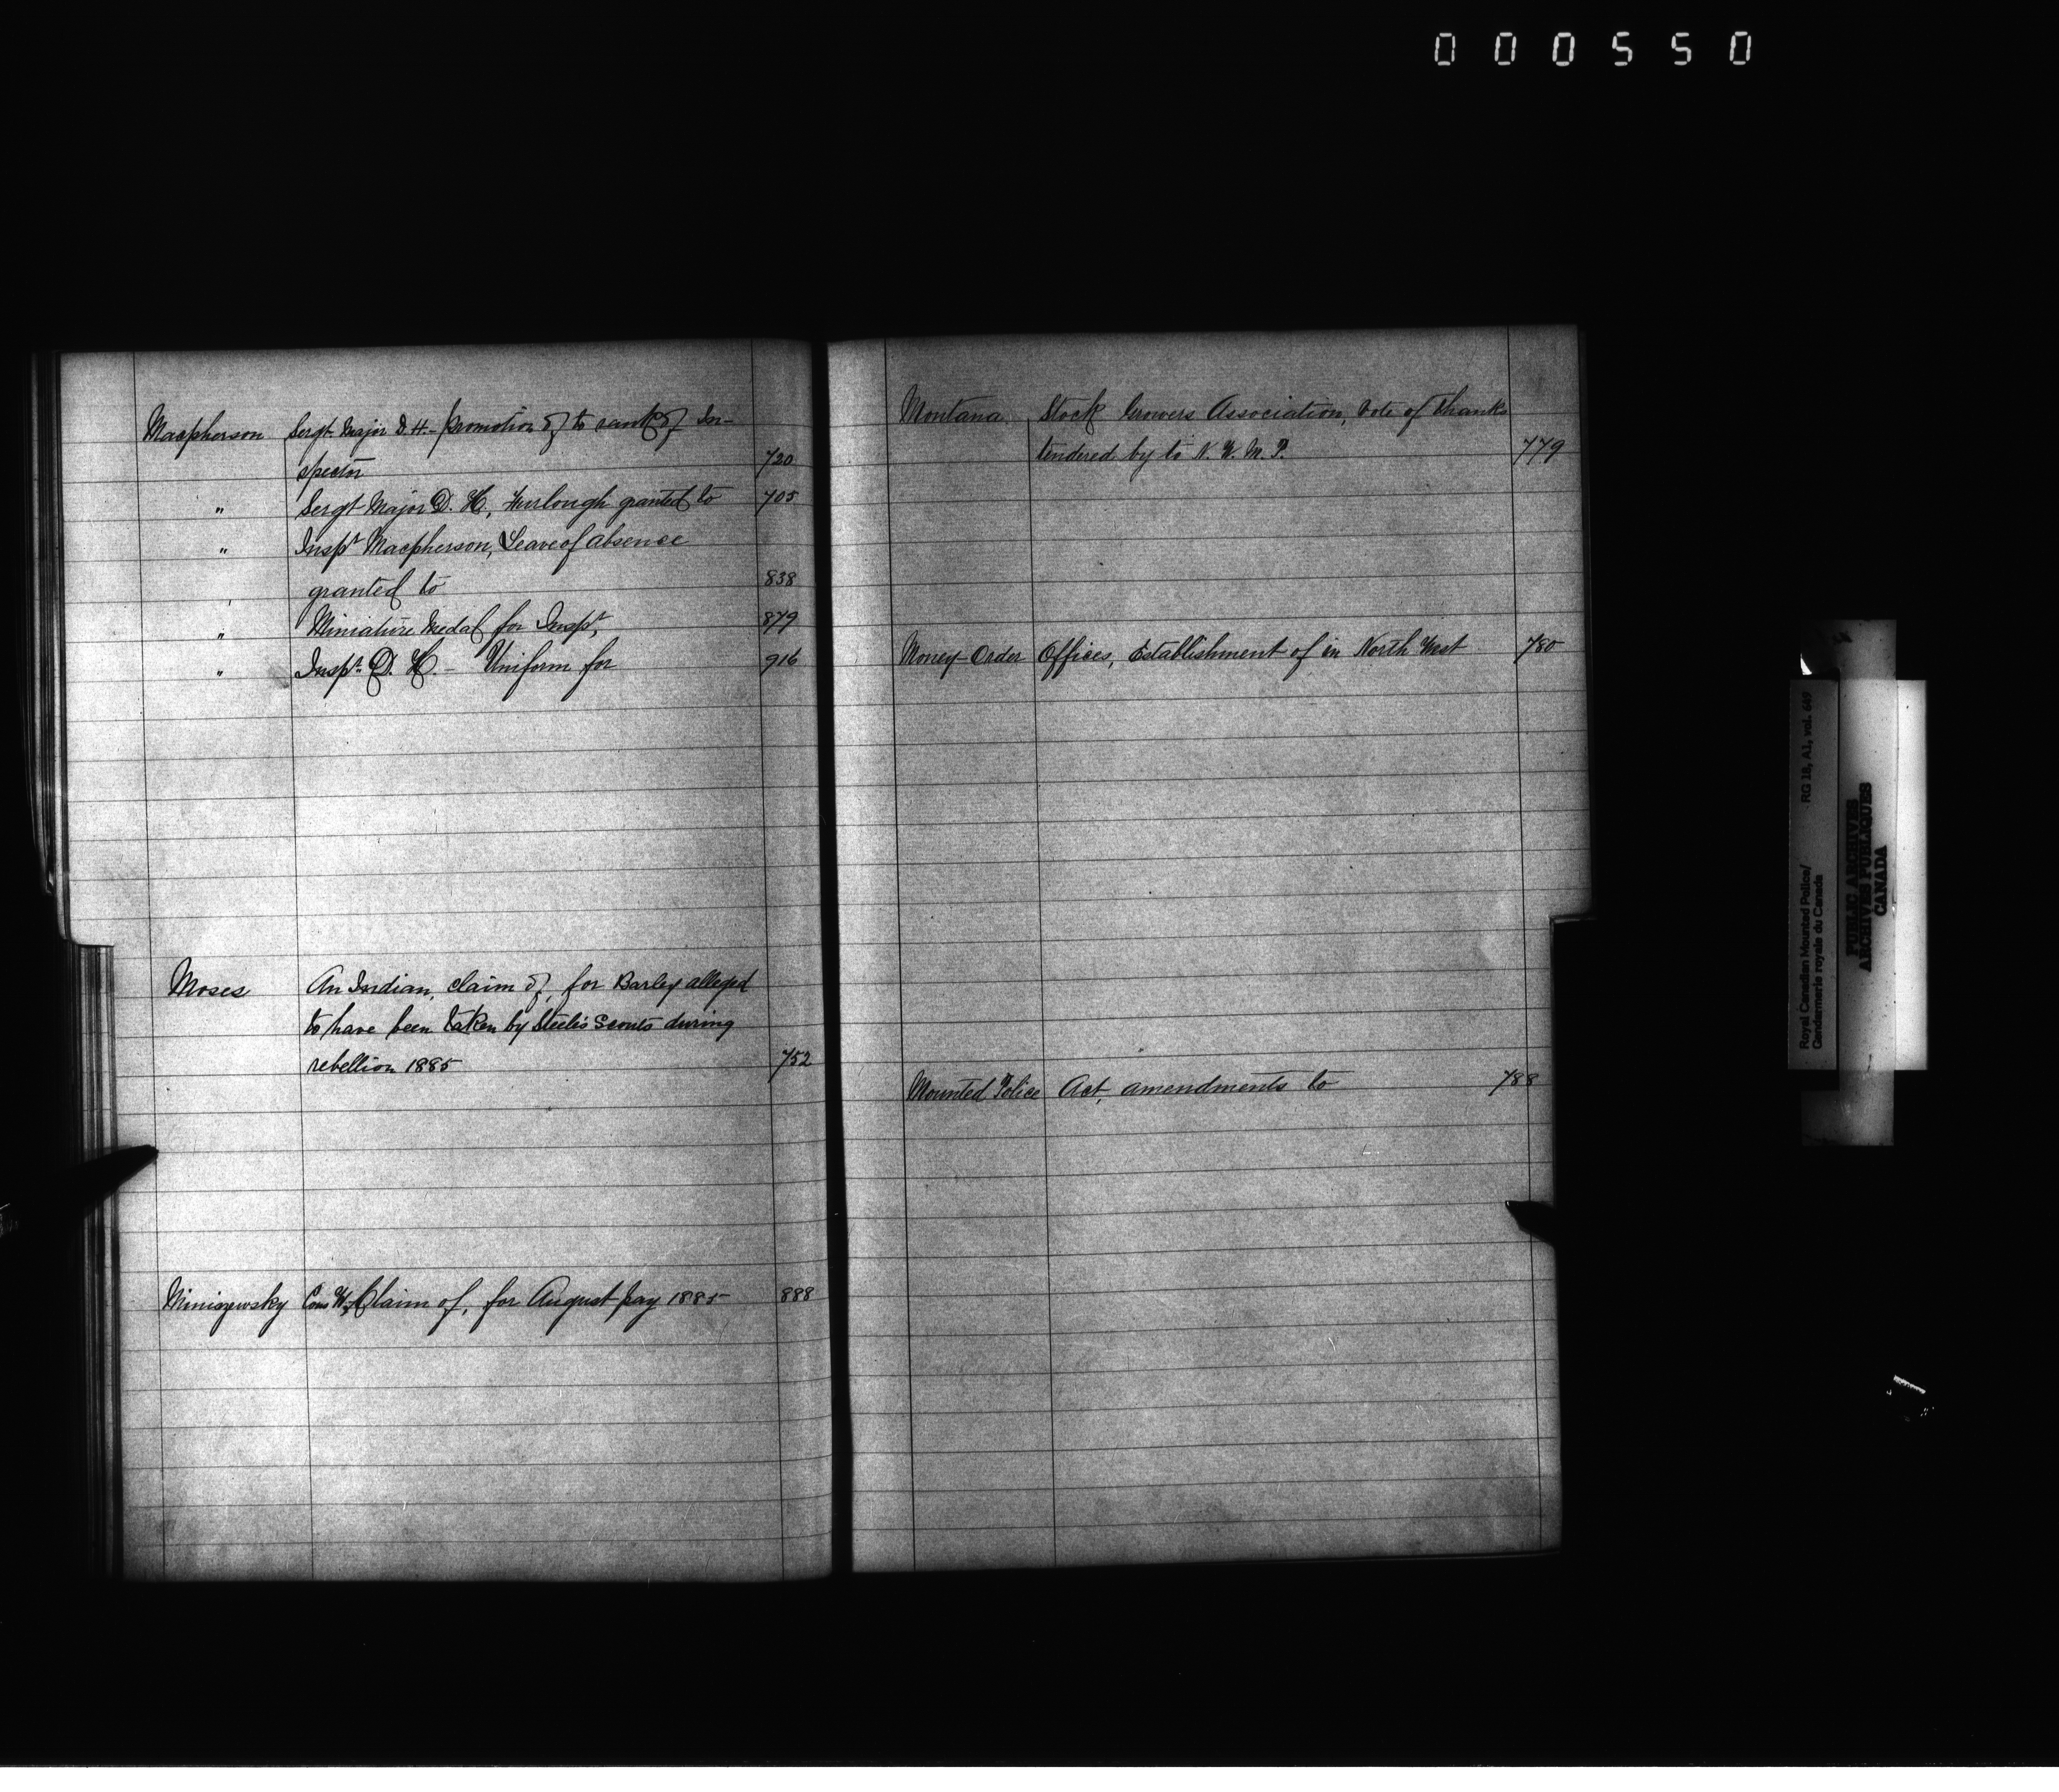 000550
Macpherson Sergt. Major D. H. - promotion of to rank of In-
spector 720
" Sergt Major D. H., Furlough granted to 705
" Inspr Macpherson, Leave of absence
granted to 838
" Miniature Medal for Inspr, 879
" Inspr. D. H. - Uniform for 916
Moses An Indian, claim of, for Barley alleged
to have been taken by Steele's Scouts during
rebellion 1885 752
Miniszewsky Cons W, Claim of, for August pay 1885 888
Montana Stock Growers Association, Vote of thanks
tendered by to N. W. M. P. 779
Money-Order Offices, Establishment of in North West 780
Mounted Police Act, amendments to 788
Royal Canadian Mounted Police/ RG 18, A1, vol. 649
Gendarmerie royale du Canada
PUBLIC ARCHIVES
ARCHIVES PUBLIQUES
CANADA